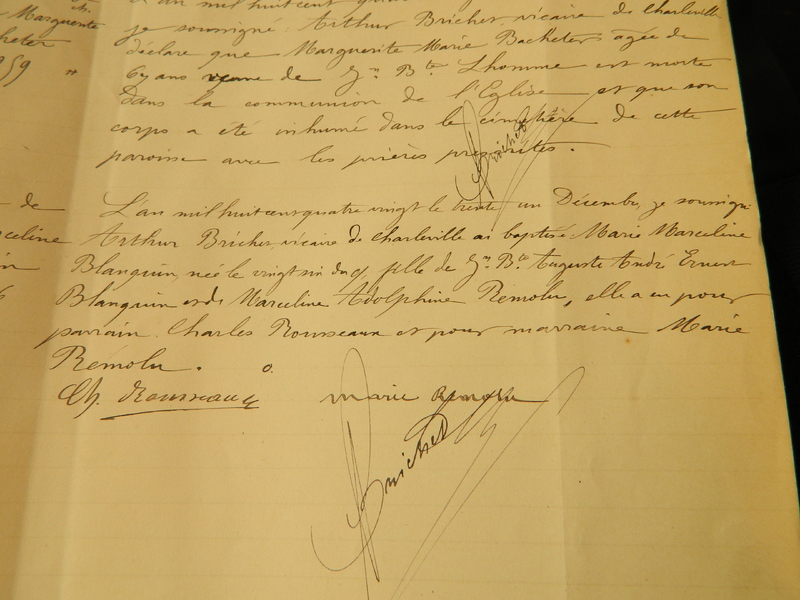 Marguerite
l'an mil huit cent
je soussigné Arthur Brichet, vicaire de Charleville
déclare que Marguerite Marie Bacheter agée de
69 ans veuve de Jn Bte Lhomme est morte
dans la communion de l'Eglise et que son
corps a été inhumé dans le cimetière de cette
paroisse avec les prières prescrites.
Brichet
de
L'an mil huit cent quatre vingt le trente un Décembre, je soussigné
Arthur Brichet, vicaire de Charleville ai baptisé Marie Marceline
Blanquin, née le vingt six du cr, fille de Jn Bte Auguste André Ernest
Blanquin et de Marceline Adolphine Remolu, elle a eu pour
parrain Charles Rousseaux et pour marraine Marie
Remolu.
Ch. Rousseaux marie Remolu
Brichet